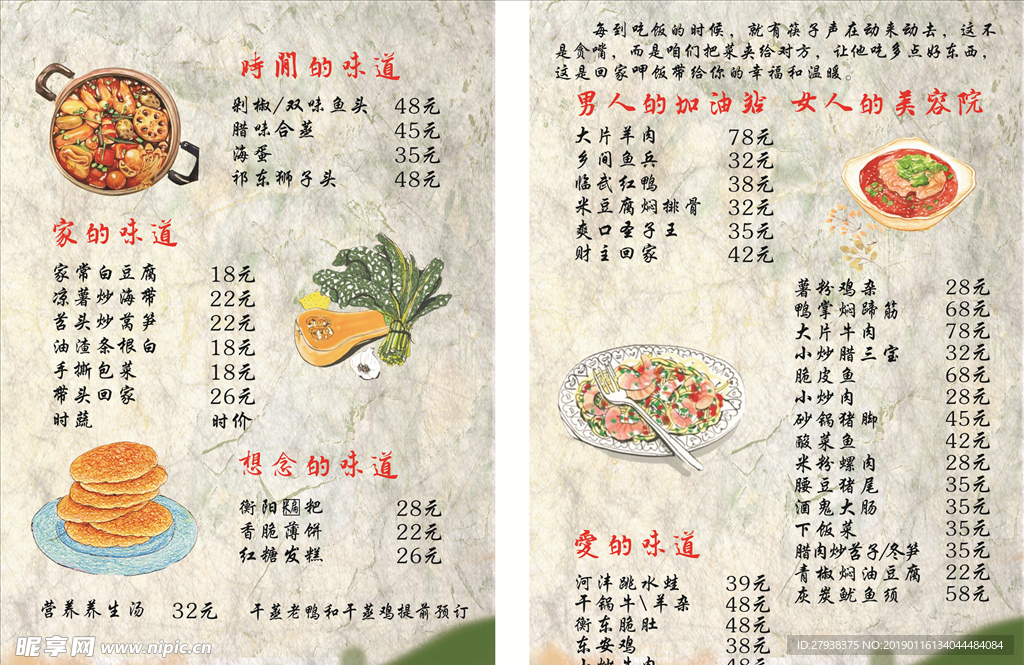 時間的味道
剁椒/双味鱼头 48元
腊味合蒸 45元
海蛋 35元
祁东狮子头 48元
家的味道
家常白豆腐 18元
凉薯炒海带 22元
苦头炒莴笋 22元
油渣条根白 18元
手撕包菜 18元
带头回家 26元
时蔬 时价
想念的味道
衡阳 粑 28元
香脆薄饼 22元
红糖发糕 26元
营养养生汤 32元
干蒸老鸭和干蒸鸡提前预订
每到吃饭的时候，就有筷子声在动来动去，这不
是贪嘴，而是咱们把菜夹给对方，让他吃多点好东西，
这是回家呷饭带给你的幸福和温暖。
男人的加油站 女人的美容院
大片羊肉 78元
乡间鱼兵 32元
临武红鸭 38元
米豆腐焖排骨 32元
爽口圣子王 35元
财主回家 42元
薯粉鸡杂 28元
鸭掌焖蹄筋 68元
大片牛肉 78元
小炒腊三宝 32元
脆皮鱼 68元
小炒肉 28元
砂锅猪脚 45元
酸菜鱼 42元
米粉螺肉 28元
腰豆猪尾 35元
酒鬼大肠 35元
下饭菜 35元
腊肉炒苦子/冬笋 35元
青椒焖油豆腐 22元
灰炭鱿鱼须 58元
愛的味道
河沣跳水蛙 39元
干锅牛\羊杂 48元
衡东脆肚 48元
东安鸡 38元
小炒牛肉 48元
昵享网 www.nipic.cn
ID:27938375 NO:20190116134044484084